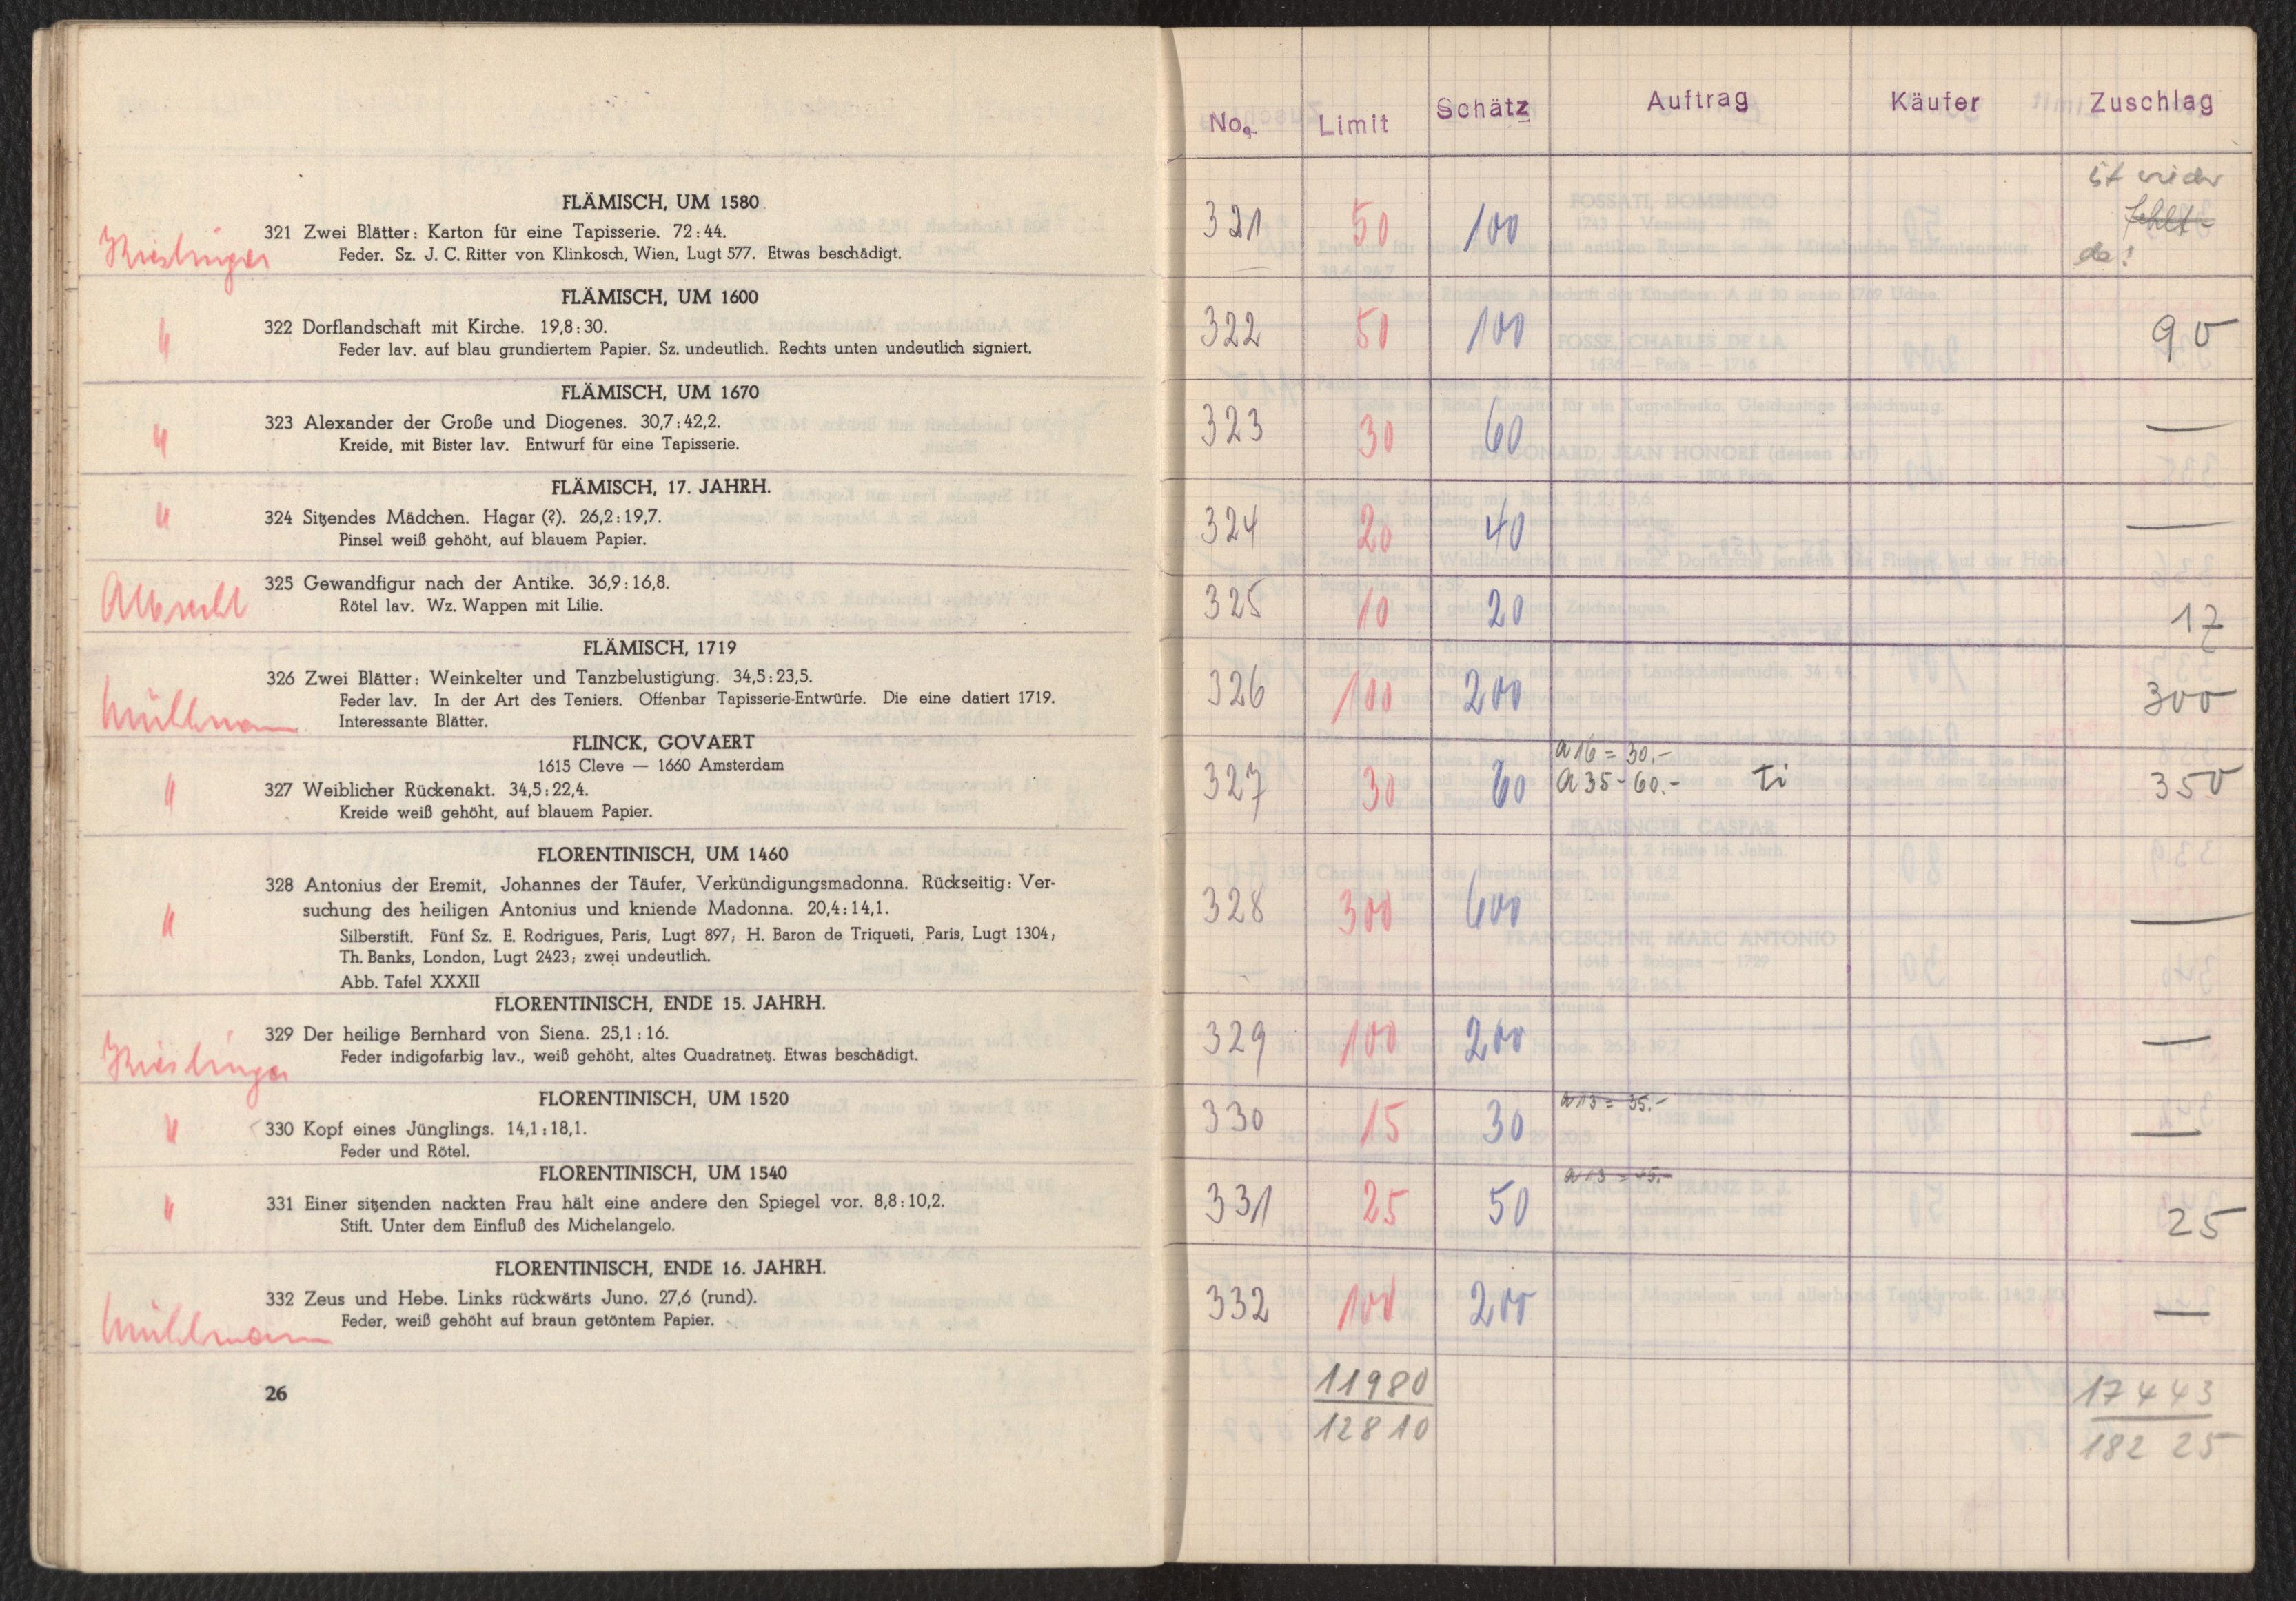 FLÄMISCH, UM 1580
321 Zwei Blätter: Karton für eine Tapisserie. 72:44.
Feder. Sz. J. C. Ritter von Klinkosch, Wien, Lugt 577. Etwas beschädigt.
Kieslinger
FLÄMISCH, UM 1600
322 Dorflandschaft mit Kirche. 19,8:30.
Feder lav. auf blau grundiertem Papier. Sz. undeutlich. Rechts unten undeutlich signiert.
"
FLÄMISCH, UM 1670
323 Alexander der Große und Diogenes. 30,7:42,2.
Kreide, mit Bister lav. Entwurf für eine Tapisserie.
"
FLÄMISCH, 17. JAHRH.
324 Sitzendes Mädchen. Hagar (?). 26,2:19,7.
Pinsel weiß gehöht, auf blauem Papier.
"
325 Gewandfigur nach der Antike. 36,9:16,8.
Rötel lav. Wz. Wappen mit Lilie.
Albrecht
FLÄMISCH, 1719
326 Zwei Blätter: Weinkelter und Tanzbelustigung. 34,5:23,5.
Feder lav. In der Art des Teniers. Offenbar Tapisserie-Entwürfe. Die eine datiert 1719.
Interessante Blätter.
Mühlmann
FLINCK, GOVAERT
1615 Cleve — 1660 Amsterdam
327 Weiblicher Rückenakt. 34,5:22,4.
Kreide weiß gehöht, auf blauem Papier.
"
FLORENTINISCH, UM 1460
328 Antonius der Eremit, Johannes der Täufer, Verkündigungsmadonna. Rückseitig: Ver-
suchung des heiligen Antonius und kniende Madonna. 20,4:14,1.
Silberstift. Fünf Sz. E. Rodrigues, Paris, Lugt 897; H. Baron de Triqueti, Paris, Lugt 1304;
Th. Banks, London, Lugt 2423; zwei undeutlich.
Abb. Tafel XXXII
"
FLORENTINISCH, ENDE 15. JAHRH.
329 Der heilige Bernhard von Siena. 25,1:16.
Feder indigofarbig lav., weiß gehöht, altes Quadratnetz. Etwas beschädigt.
Kieslinger
FLORENTINISCH, UM 1520
330 Kopf eines Jünglings. 14,1:18,1.
Feder und Rötel.
"
FLORENTINISCH, UM 1540
331 Einer sitzenden nackten Frau hält eine andere den Spiegel vor. 8,8:10,2.
Stift. Unter dem Einfluß des Michelangelo.
"
FLORENTINISCH, ENDE 16. JAHRH.
332 Zeus und Hebe. Links rückwärts Juno. 27,6 (rund).
Feder, weiß gehöht auf braun getöntem Papier.
Mühlmann
26
No. Limit Schätz Auftrag Käufer Zuschlag
ist wieder
321 50 100 fehlt
da!
322 50 100 90
323 30 60 —
324 20 40 —
325 10 20 17
326 100 200 300
a 16 = 30.-
327 30 60 a 35 - 60.- ti 350
328 300 600 —
329 100 200 —
a 13 = 35.-
330 15 30 —
a 13 = 45.-
331 25 50 25
332 100 200 —
11980 17443
12810 18225